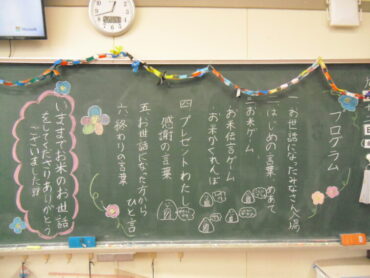 プログラム
一 お世話になったみなさん入場
二 はじめの言葉、めあて
三 お米ゲーム
・お米伝言ゲーム
・お米かくれんぼ
四 プレゼントわたし
感謝の言葉
五 お世話になった方から
ひと言
六 終わりの言葉
いままでお米のお世話
をしてくださりありがとう
ございました!!!